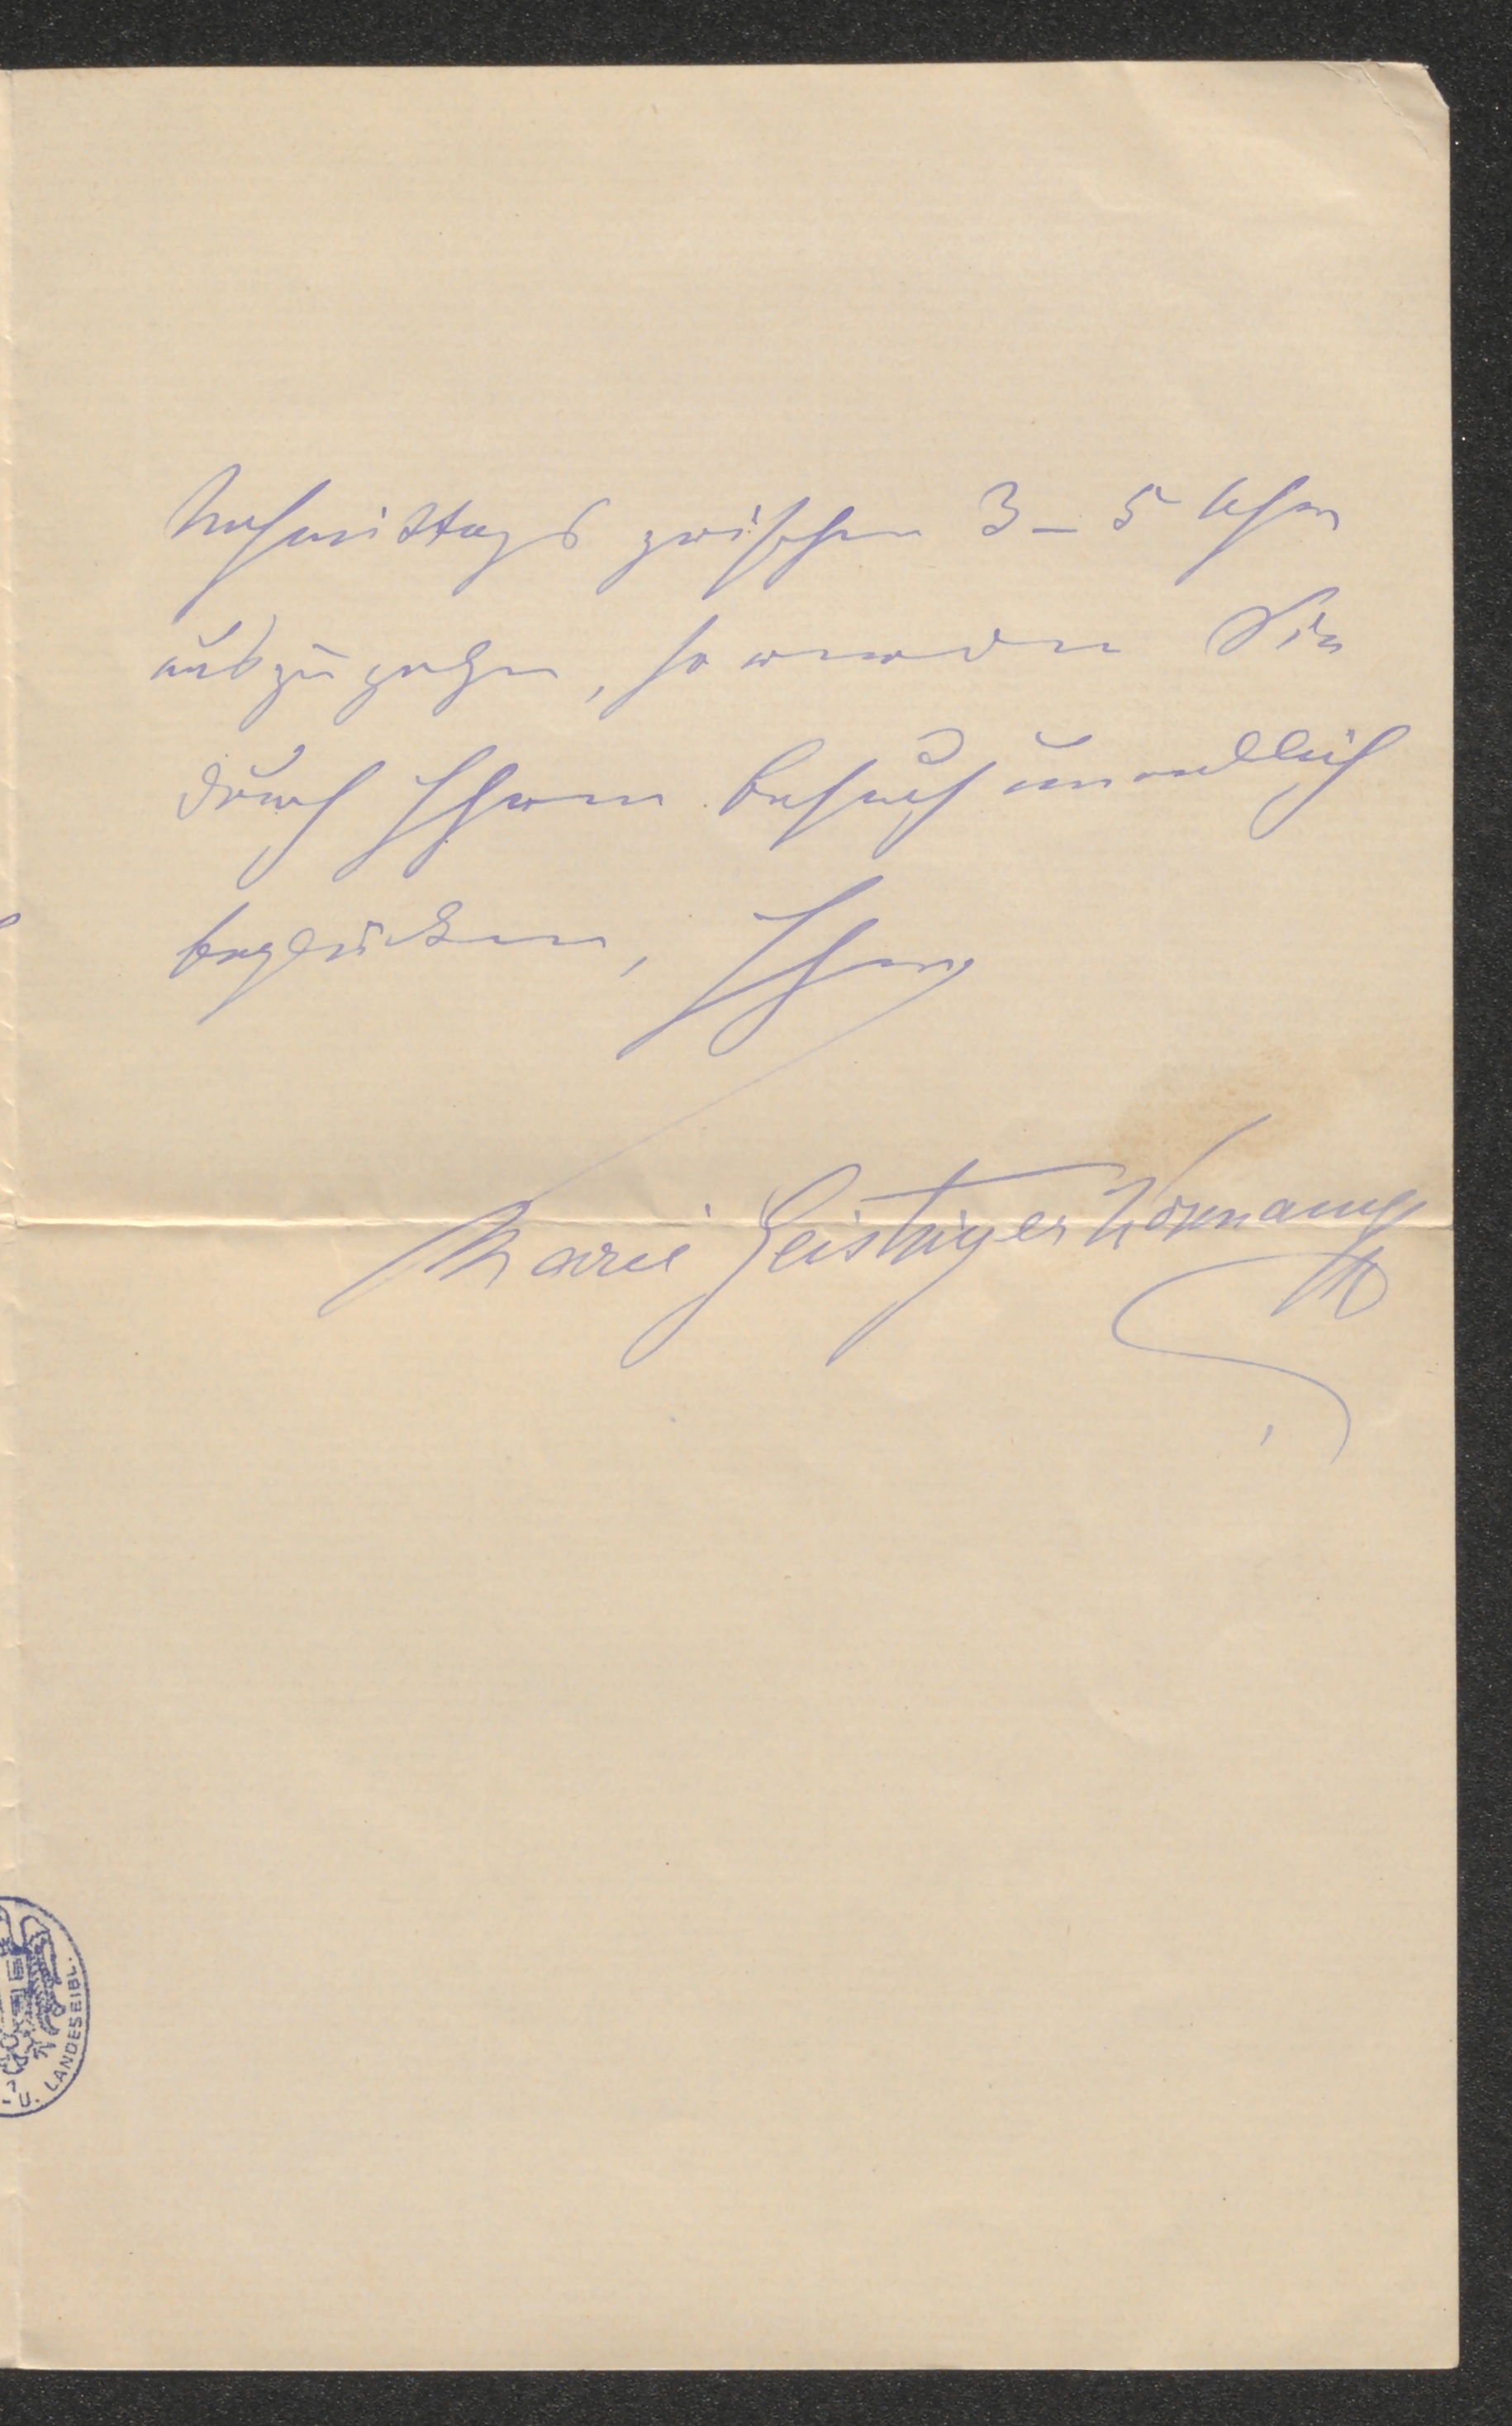 Nachmittags zwischen 3 – 5 Uhr
auszugehen, so werden Sie
durch Ihren Besuch unendlich
beglücken, Ihre
Marie Geistinger Kormann
U. LANDESBIBL.